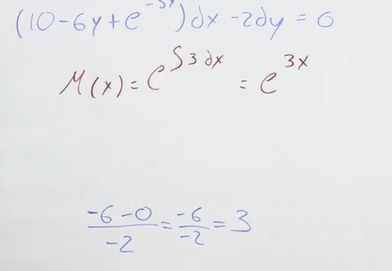 (10-6y+e^{-3x})dx-2dy=0
M(x)=e^{∫3dx}=e^{3x}
\frac{-6-0}{-2}=\frac{-6}{-2}=3